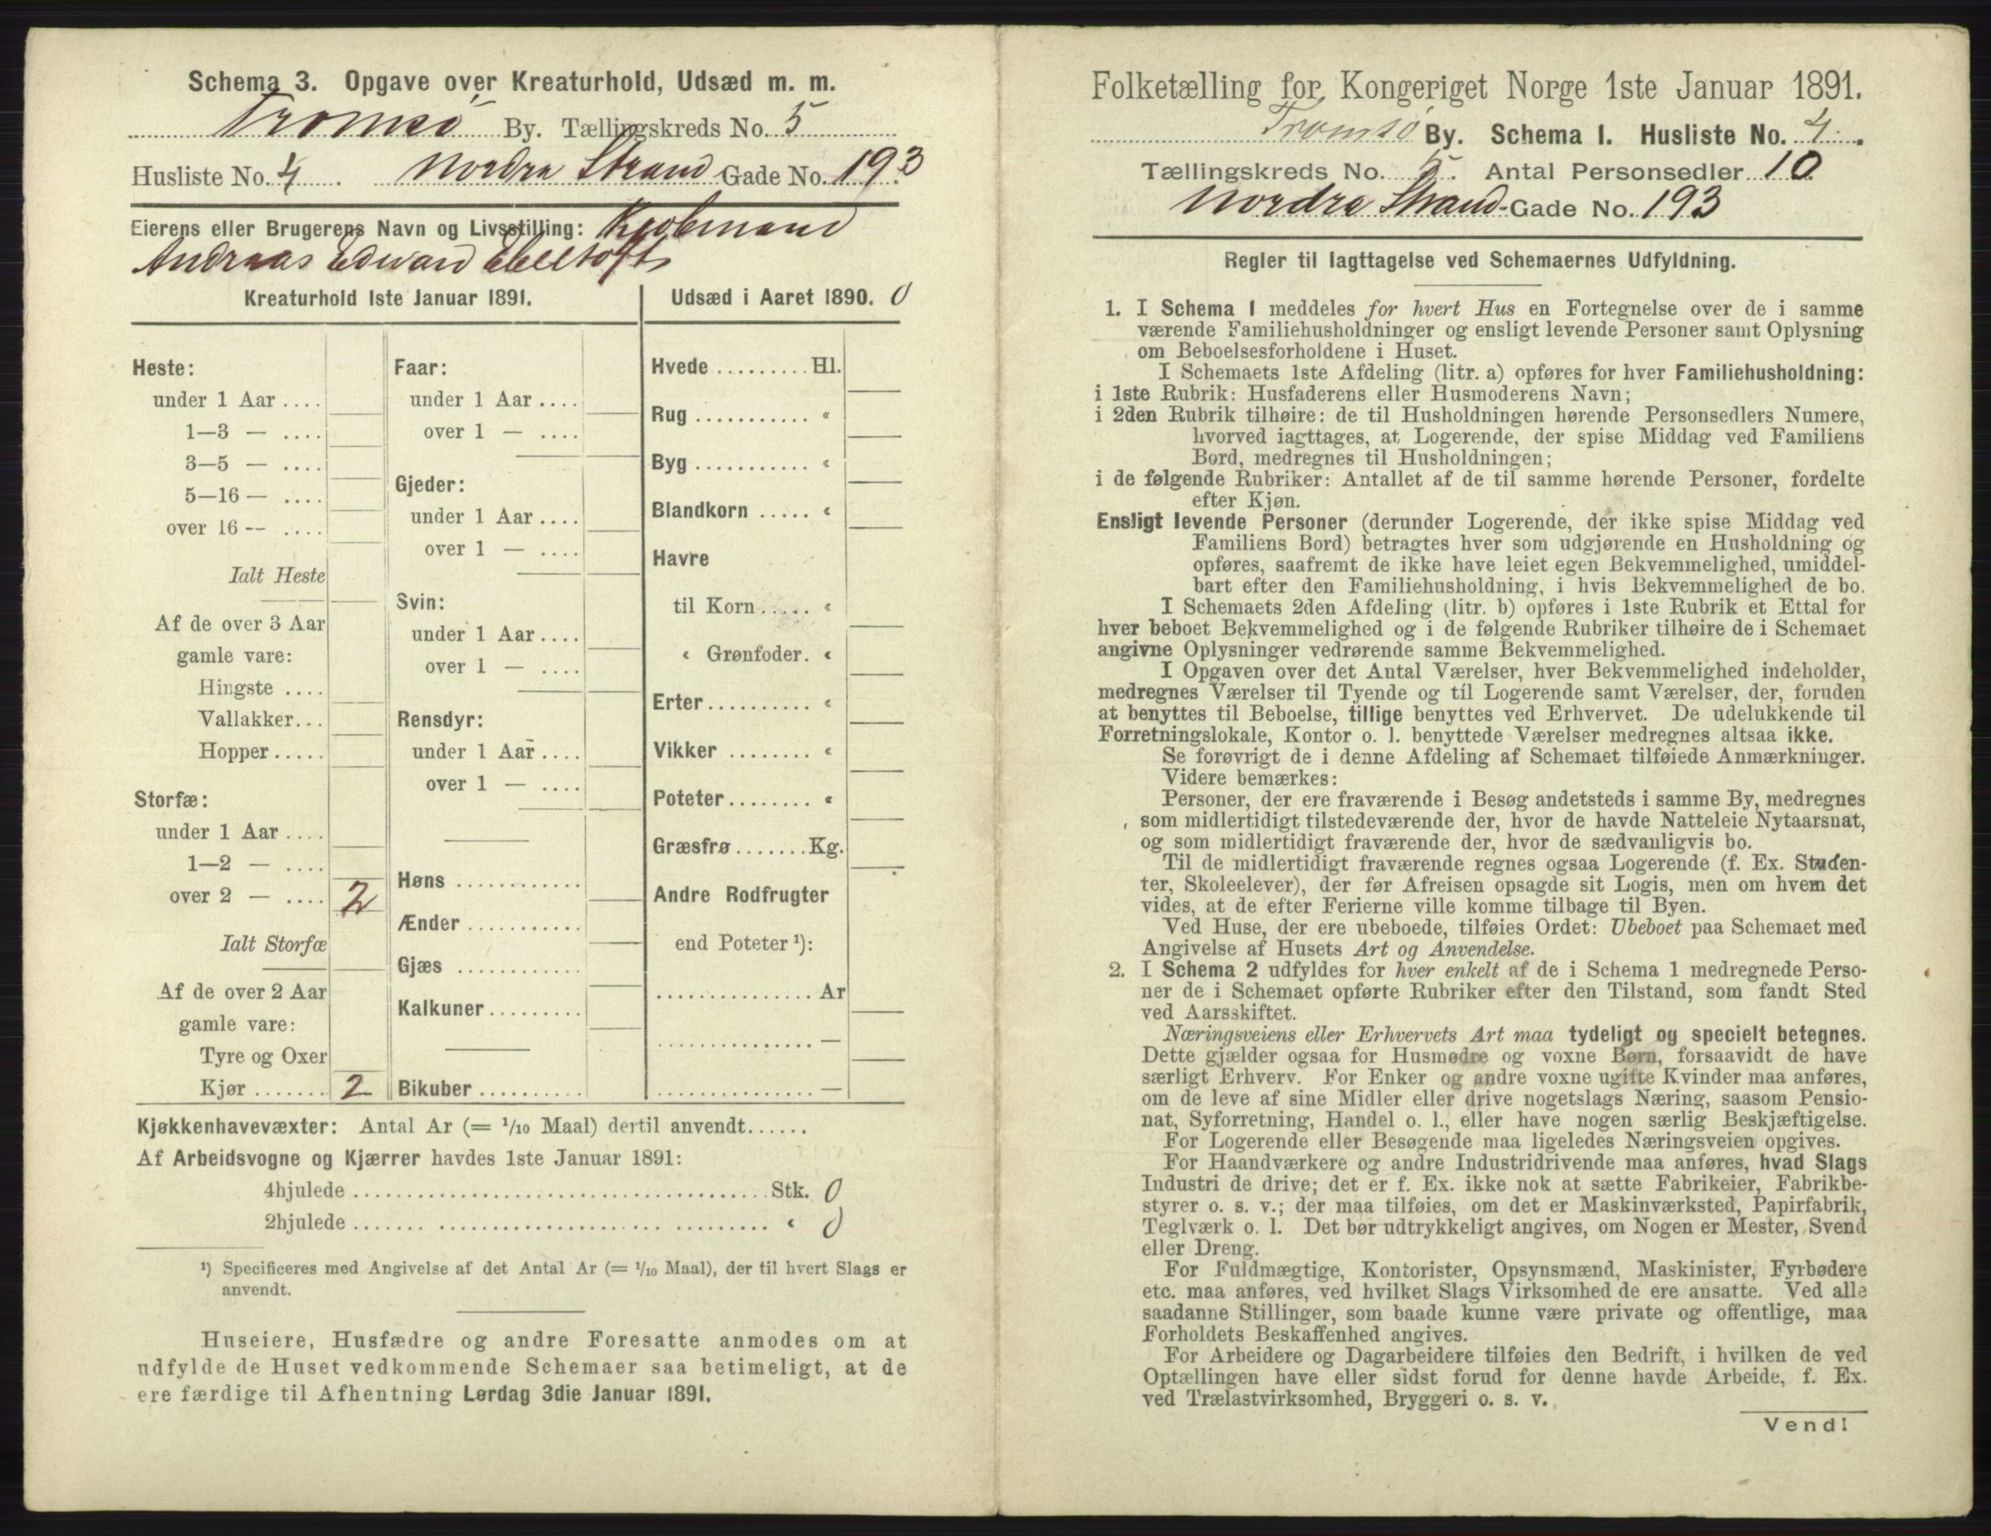 Schema 3. Opgave over Kreaturhold, Udsæd m. m.
Tromsø By. Tællingskreds No. 5
Husliste No. 4 Nordre Strand Gade No. 193
Eierens eller Brugerens Navn og Livsstilling: Kjøbmand
Andreas Edward Ebeltoft
Kreaturhold 1ste Januar 1891.
Heste:
under 1 Aar ....
1—3 — ....
3—5 — ....
5—16 — ....
over 16 — ....
Ialt Heste
Af de over 3 Aar
gamle vare:
Hingste ....
Vallakker...
Hopper.....
Storfæ:
under 1 Aar ....
1—2 — ....
over 2 — .... 2
Ialt Storfæ
Af de over 2 Aar
gamle vare:
Tyre og Oxer
Kjør ....... 2
Faar:
under 1 Aar ....
over 1 — ....
Gjeder:
under 1 Aar ....
over 1 — ....
Svin:
under 1 Aar ....
over 1 — ....
Rensdyr:
under 1 Aar ....
over 1 — ....
Høns ............
Ænder ...........
Gjæs ............
Kalkuner.........
Bikuber..........
Udsæd i Aaret 1890. 0
Hvede ......... Hl.
Rug ........... «
Byg ........... «
Blandkorn ..... «
Havre
til Korn ..... «
« Grønfoder. «
Erter.......... «
Vikker ........ «
Poteter........ «
Græsfrø ....... Kg.
Andre Rodfrugter
end Poteter ¹):
............... Ar
............... —
............... —
Kjøkkenhavevæxter: Antal Ar (= 1/10 Maal) dertil anvendt......
Af Arbeidsvogne og Kjærrer havdes 1ste Januar 1891:
4hjulede ........................................ Stk. 0
2hjulede ........................................ « 0
¹) Specificeres med Angivelse af det Antal Ar (= 1/10 Maal), der til hvert Slags er
anvendt.
Huseiere, Husfædre og andre Foresatte anmodes om at
udfylde de Huset vedkommende Schemaer saa betimeligt, at de
ere færdige til Afhentning Lørdag 3die Januar 1891.
Folketælling for Kongeriget Norge 1ste Januar 1891.
Tromsø By. Schema 1. Husliste No. 4.
Tællingskreds No. 5. Antal Personsedler 10
Nordre Strand-Gade No. 193
Regler til Iagttagelse ved Schemaernes Udfyldning.
1. I Schema 1 meddeles for hvert Hus en Fortegnelse over de i samme
værende Familiehusholdninger og ensligt levende Personer samt Oplysning
om Beboelsesforholdene i Huset.
I Schemaets 1ste Afdeling (litr. a) opføres for hver Familiehusholdning:
i 1ste Rubrik: Husfaderens eller Husmoderens Navn;
i 2den Rubrik tilhøire: de til Husholdningen hørende Personsedlers Numere,
hvorved iagttages, at Logerende, der spise Middag ved Familiens
Bord, medregnes til Husholdningen;
i de følgende Rubriker: Antallet af de til samme hørende Personer, fordelte
efter Kjøn.
Ensligt levende Personer (derunder Logerende, der ikke spise Middag ved
Familiens Bord) betragtes hver som udgjørende en Husholdning og
opføres, saafremt de ikke have leiet egen Bekvemmelighed, umiddel-
bart efter den Familiehusholdning, i hvis Bekvemmelighed de bo.
I Schemaets 2den Afdeling (litr. b) opføres i 1ste Rubrik et Ettal for
hver beboet Bekvemmelighed og i de følgende Rubriker tilhøire de i Schemaet
angivne Oplysninger vedrørende samme Bekvemmelighed.
I Opgaven over det Antal Værelser, hver Bekvemmelighed indeholder,
medregnes Værelser til Tyende og til Logerende samt Værelser, der, foruden
at benyttes til Beboelse, tillige benyttes ved Erhvervet. De udelukkende til
Forretningslokale, Kontor o. l. benyttede Værelser medregnes altsaa ikke.
Se forøvrigt de i denne Afdeling af Schemaet tilføiede Anmærkninger.
Videre bemærkes:
Personer, der ere fraværende i Besøg andetsteds i samme By, medregnes
som midlertidigt tilstedeværende der, hvor de havde Natteleie Nytaarsnat,
og som midlertidigt fraværende der, hvor de sædvanligvis bo.
Til de midlertidigt fraværende regnes ogsaa Logerende (f. Ex. Studen-
ter, Skoleelever), der før Afreisen opsagde sit Logis, men om hvem det
vides, at de efter Ferierne ville komme tilbage til Byen.
Ved Huse, der ere ubeboede, tilføies Ordet: Ubeboet paa Schemaet med
Angivelse af Husets Art og Anvendelse.
2. I Schema 2 udfyldes for hver enkelt af de i Schema 1 medregnede Perso-
ner de i Schemaet opførte Rubriker efter den Tilstand, som fandt Sted
ved Aarsskiftet.
Næringsveiens eller Erhvervets Art maa tydeligt og specielt betegnes.
Dette gjælder ogsaa for Husmødre og voxne Børn, forsaavidt de have
særligt Erhverv. For Enker og andre voxne ugifte Kvinder maa anføres,
om de leve af sine Midler eller drive nogetslags Næring, saasom Pensio-
nat, Syforretning, Handel o. l., eller have nogen særlig Beskjæftigelse.
For Logerende eller Besøgende maa ligeledes Næringsveien opgives.
For Haandværkere og andre Industridrivende maa anføres, hvad Slags
Industri de drive; det er f. Ex. ikke nok at sætte Fabrikeier, Fabrikbe-
styrer o. s. v.; der maa tilføies, om det er Maskinværksted, Papirfabrik,
Teglværk o. l. Det bør udtrykkeligt angives, om Nogen er Mester, Svend
eller Dreng.
For Fuldmægtige, Kontorister, Opsynsmænd, Maskinister, Fyrbødere
etc. maa anføres, ved hvilket Slags Virksomhed de ere ansatte. Ved alle
saadanne Stillinger, som baade kunne være private og offentlige, maa
Forholdets Beskaffenhed angives.
For Arbeidere og Dagarbeidere tilføies den Bedrift, i hvilken de ved
Optællingen have eller sidst forud for denne havde Arbeide, f. Ex.
ved Trælastvirksomhed, Bryggeri o. s. v.
Vend!